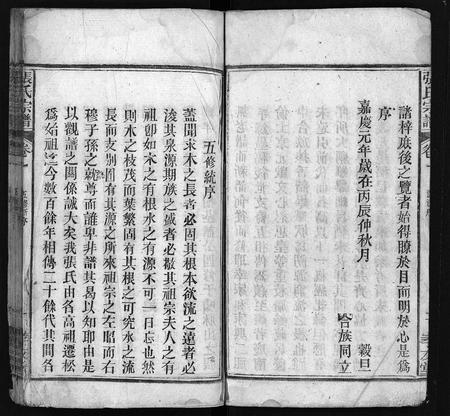 諸梓庶後之覽者始得瞭於目而明於心是爲
序
嘉慶元年歲在丙辰仲秋月
穀旦
合族同立
張氏宗譜
卷一
五修統序
蓋聞求木之長者必固其根本欲流之遠者必
浚其泉源期族之盛者必敬其祖宗夫人之有
祖卽如木之有根水之有源不可一日忘也然
則木之枝茂而葉繁固有其根之可究水之流
長而支別固有其源之所來祖宗之左昭而右
穆子孫之執尊而誰卑非譜其曷以知耶由是
以觀譜之關係誠大矣我張氏由各高祖遷松
爲始祖迄今數百餘年相傳二十餘代其間各
張氏宗譜
卷一